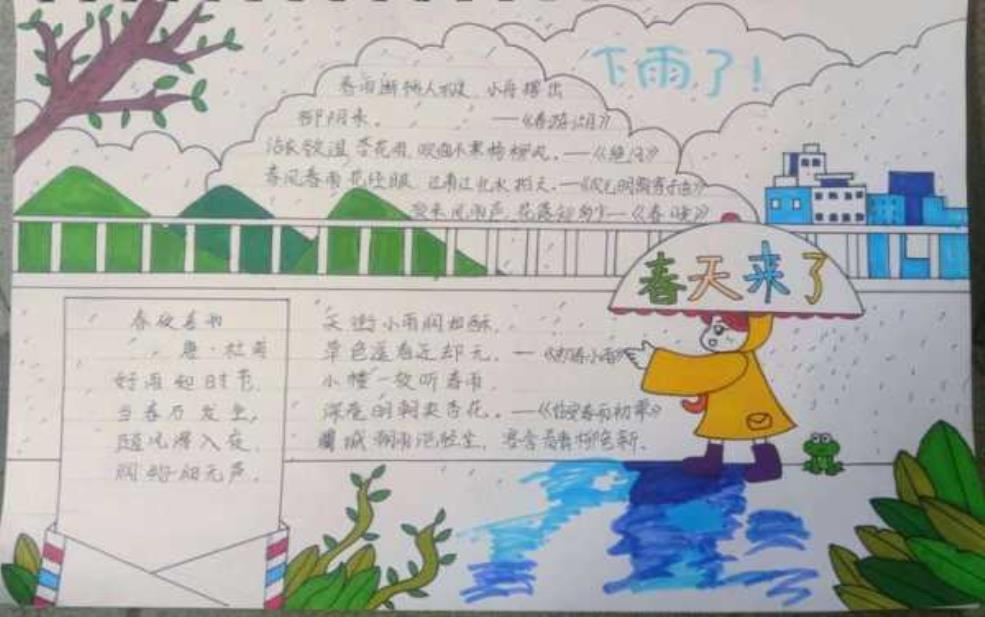 下雨了!
春雨断桥人不度,小舟撑出
柳阴来。 ——《春游湖》
沾衣欲湿杏花雨,吹面不寒杨柳风。——《绝句》
春风春雨花经眼,江南江北水拍天。——
夜来风雨声,花落知多少——《春晓》
春天来了
春夜喜雨
唐·杜甫
好雨知时节,
当春乃发生,
随风潜入夜,
润物细无声。
天街小雨润如酥,
草色遥看近却无。——《初春小雨》
小楼一夜听春雨,
深巷明朝卖杏花。——《临安春雨初霁》
渭城朝雨浥轻尘,客舍青青柳色新。